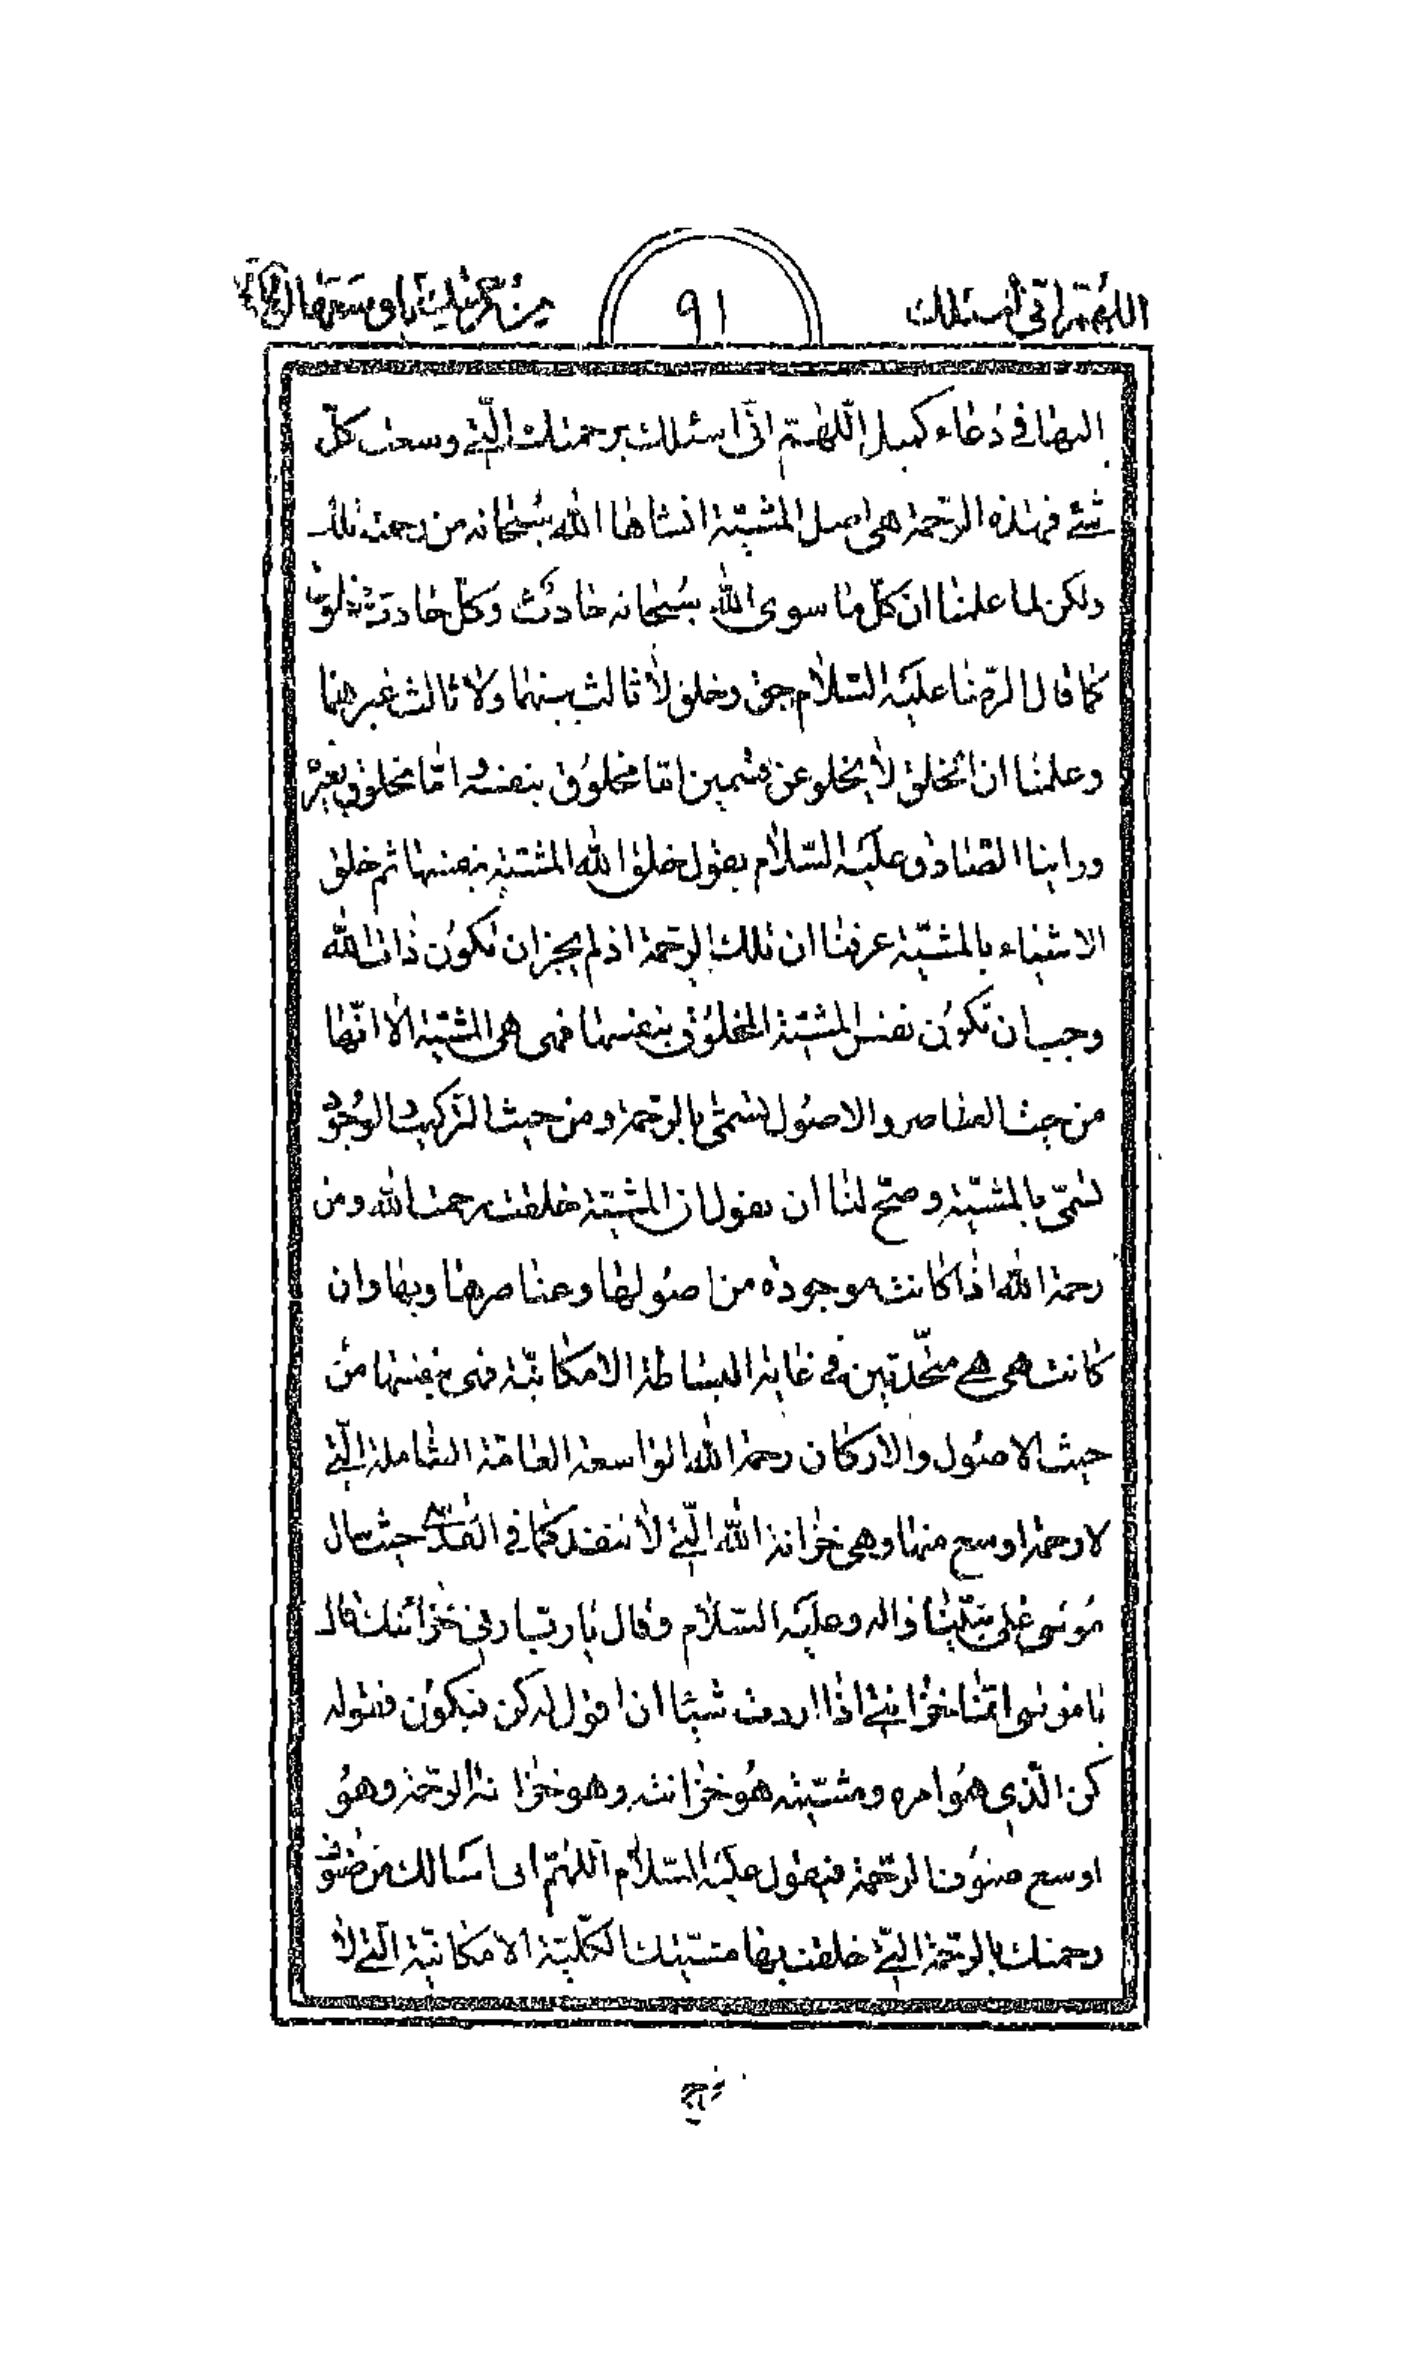 اللهم انی اسئلك
٩١
من
اليها في دعاء كميل اللهم انّی اسئلك برحمتك الّتي وسعت كلّ
شئ فهذه الرّحمة هی اصل المشيّة انشاها الله سبحانه من رحمة تلك
ولكن لما علمنا ان كلّ ما سوی الله سبحانه حادث وكلّ حادث مخلوق
كما قال الرّضا عليه السّلام حق وخلق لا ثالث بينهما ولا ثالث غيرهما
وعلمنا ان الخلق لا يخلو عن قسمين امّا مخلوق بنفسه وامّا مخلوق بغيره
وراينا الصّادق عليه السّلام يقول خلق الله المشيّة بنفسها ثم خلق
الاشياء بالمشيّة عرفنا ان تلك الرّحمة اذ لم يجز ان تكون ذات الله
وجب ان تكون نفس المشيّة المخلوق بنفسها فهی هی المشيّة الّا انّها
من حيث العناصر والاصول تسمّی بالرّحمة ومن حيث التّركيب الوجود
تسمّی بالمشيّة وصحّ لنا ان نقول ان المشيّة خلقت برحمة الله ومن
رحمة الله اذا كانت موجودة من اصولها وعناصرها وبها وان
كانت هی هي متّحدتين في غاية البساطة الامكانيّة فهی بنفسها من
حيث الاصول والاركان رحمة الله الواسعة العامّة الشّاملة الّتي
لا رحمة اوسع منها وهی خزانة الله الّتي لا تنفد كما في القدسي حيث سال
موسی علی نبيّنا واله وعليه السّلام وقال يا ربّ ارني خزائنك قال
يا موسی انّما خزائني اذا اردت شيئا ان اقول له كن فيكون فقوله
كن الّذي هو امره ومشيّته هو خزانته وهو خزانة الرّحمة وهو
اوسع صنوف الرّحمة فيقول عليه السّلام اللهم انی اسالك من صنوف
رحمتك بالرّحمة الّتي خلقت بها مشيّتك الكلّية الامكانيّة الّتي لا